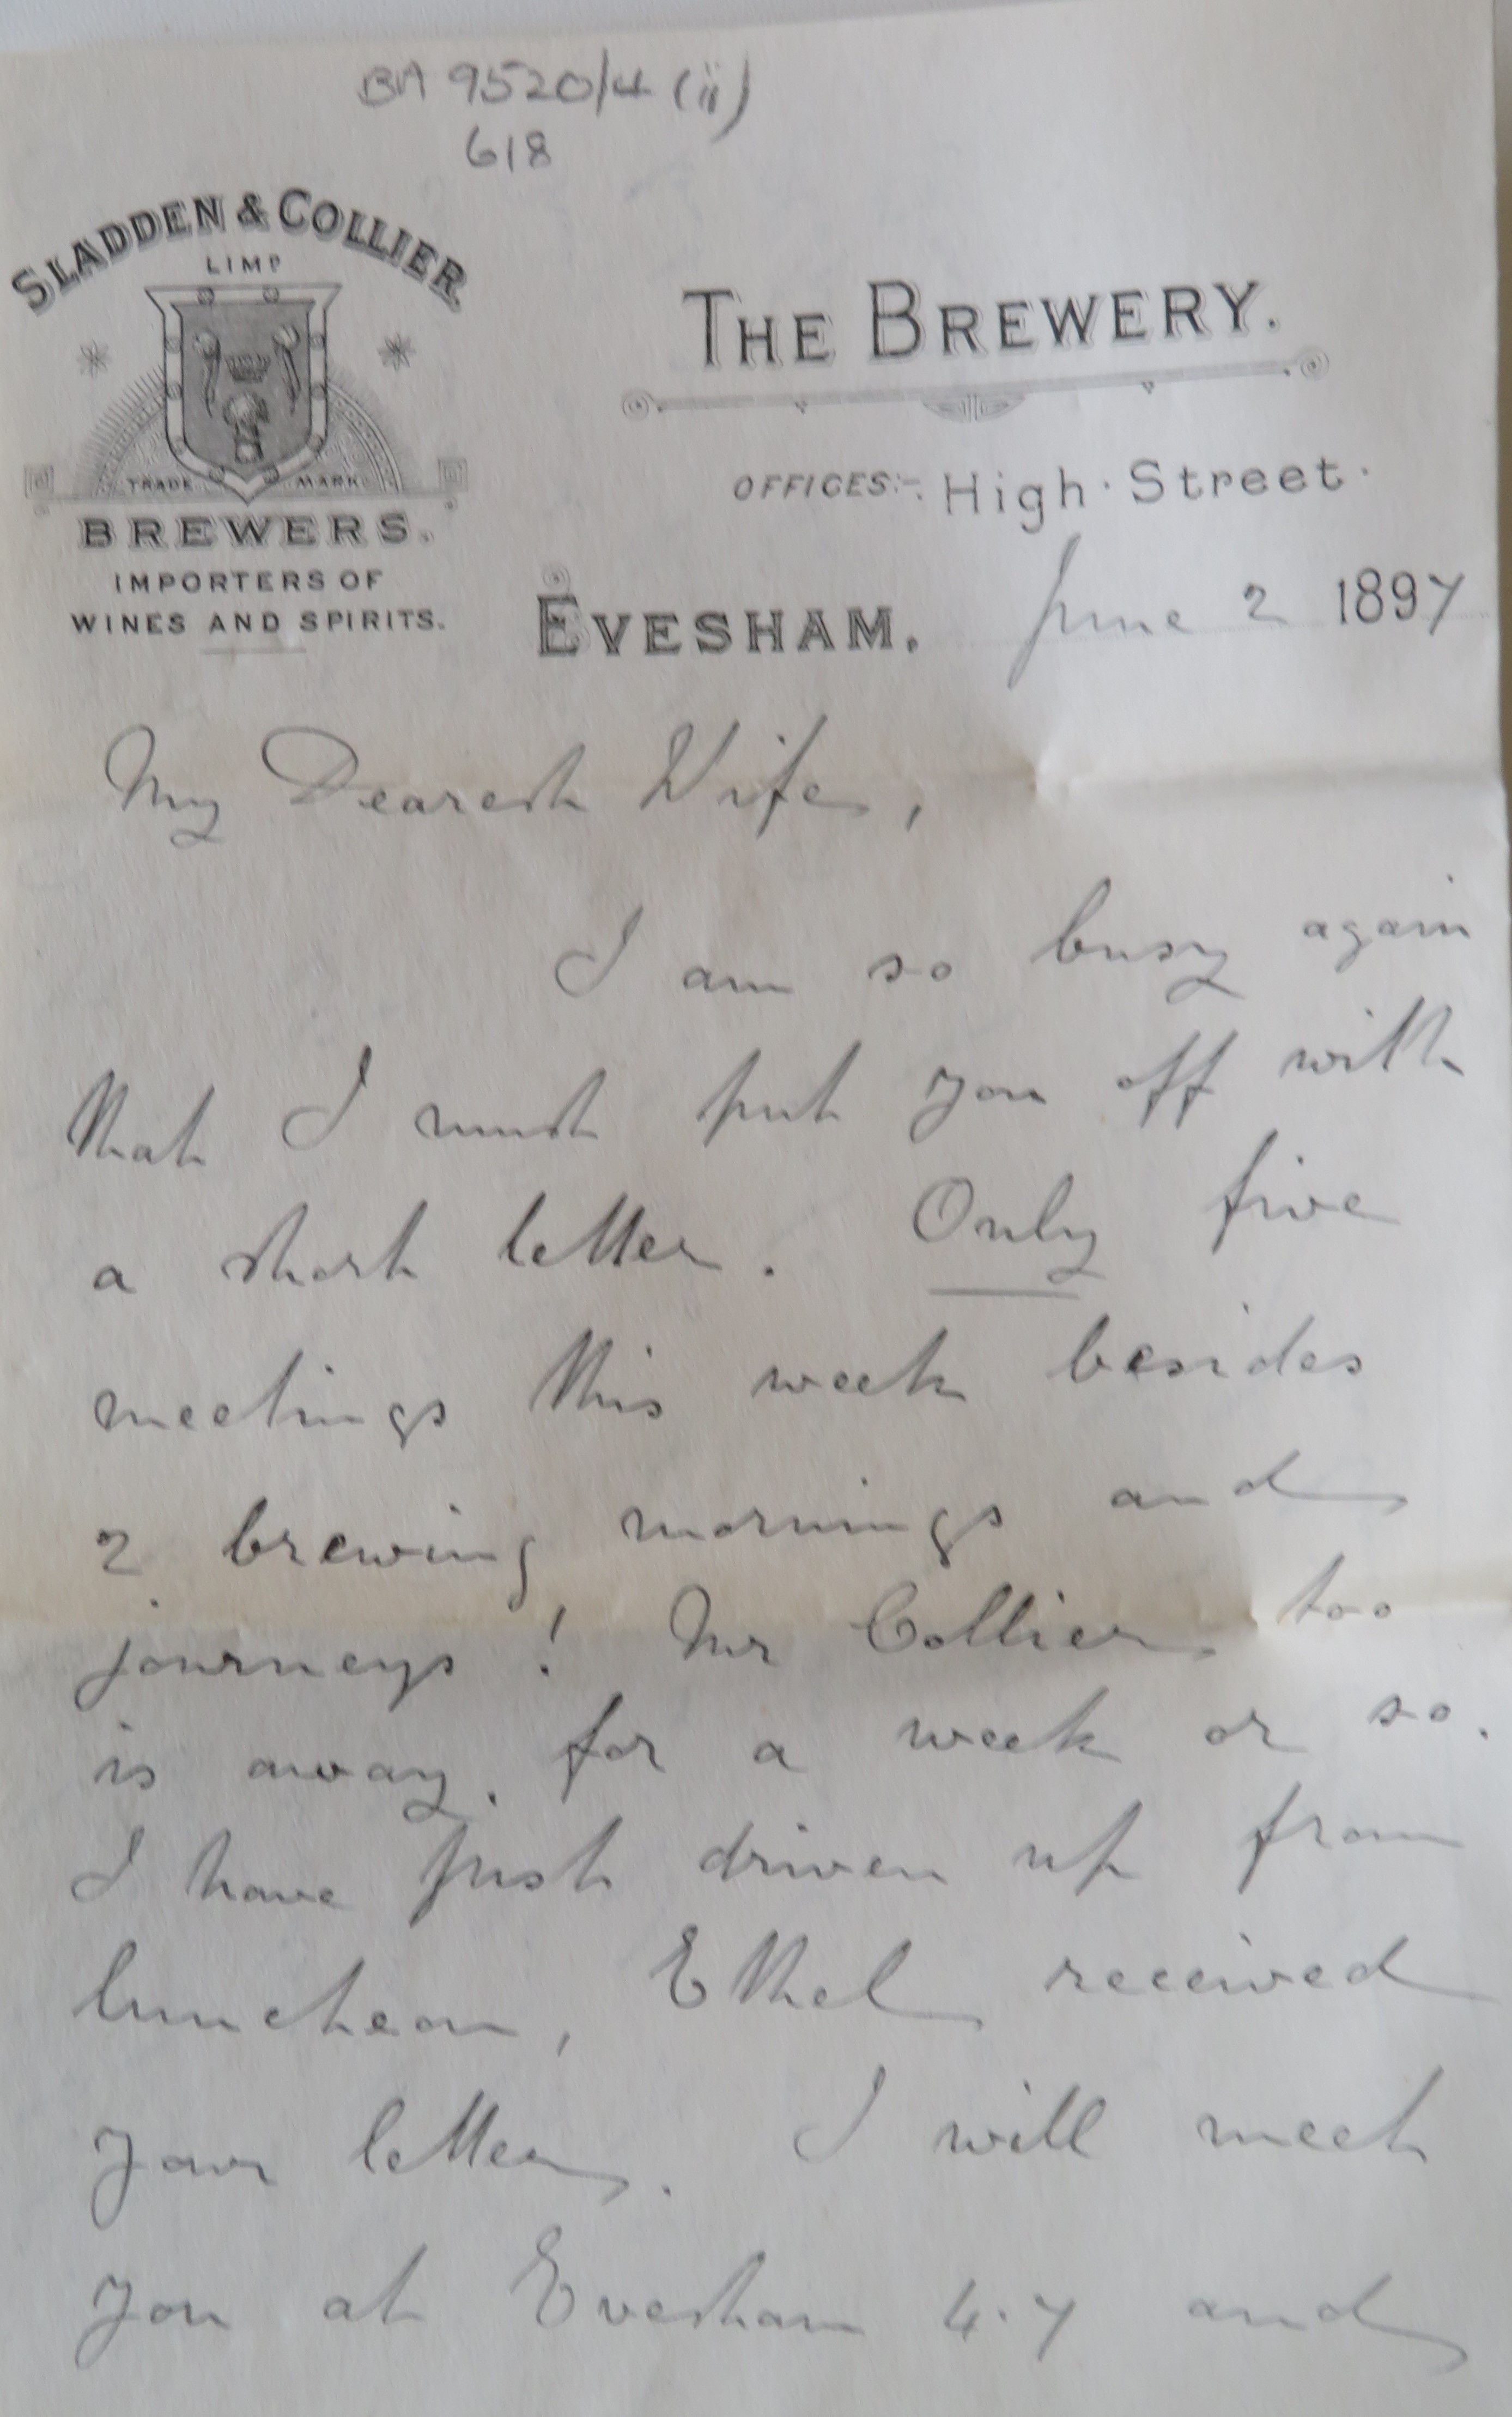 BA 9520/4 (ii)
618
SLADDEN & COLLIER
LIMD
TRADE MARK
BREWERS.
IMPORTERS OF
WINES AND SPIRITS.
THE BREWERY.
OFFICES:- High Street.
EVESHAM. June 2 1897
My Dearest Wife,
I am so busy again
that I must put you off with
a short letter. Only five
meetings this week besides
2 brewing mornings and
journeys! Mr Collier too
is away. for a week or so.
I have just driven up from
luncheon, Ethel received
your letter. I will meet
you at Evesham 4.7 and